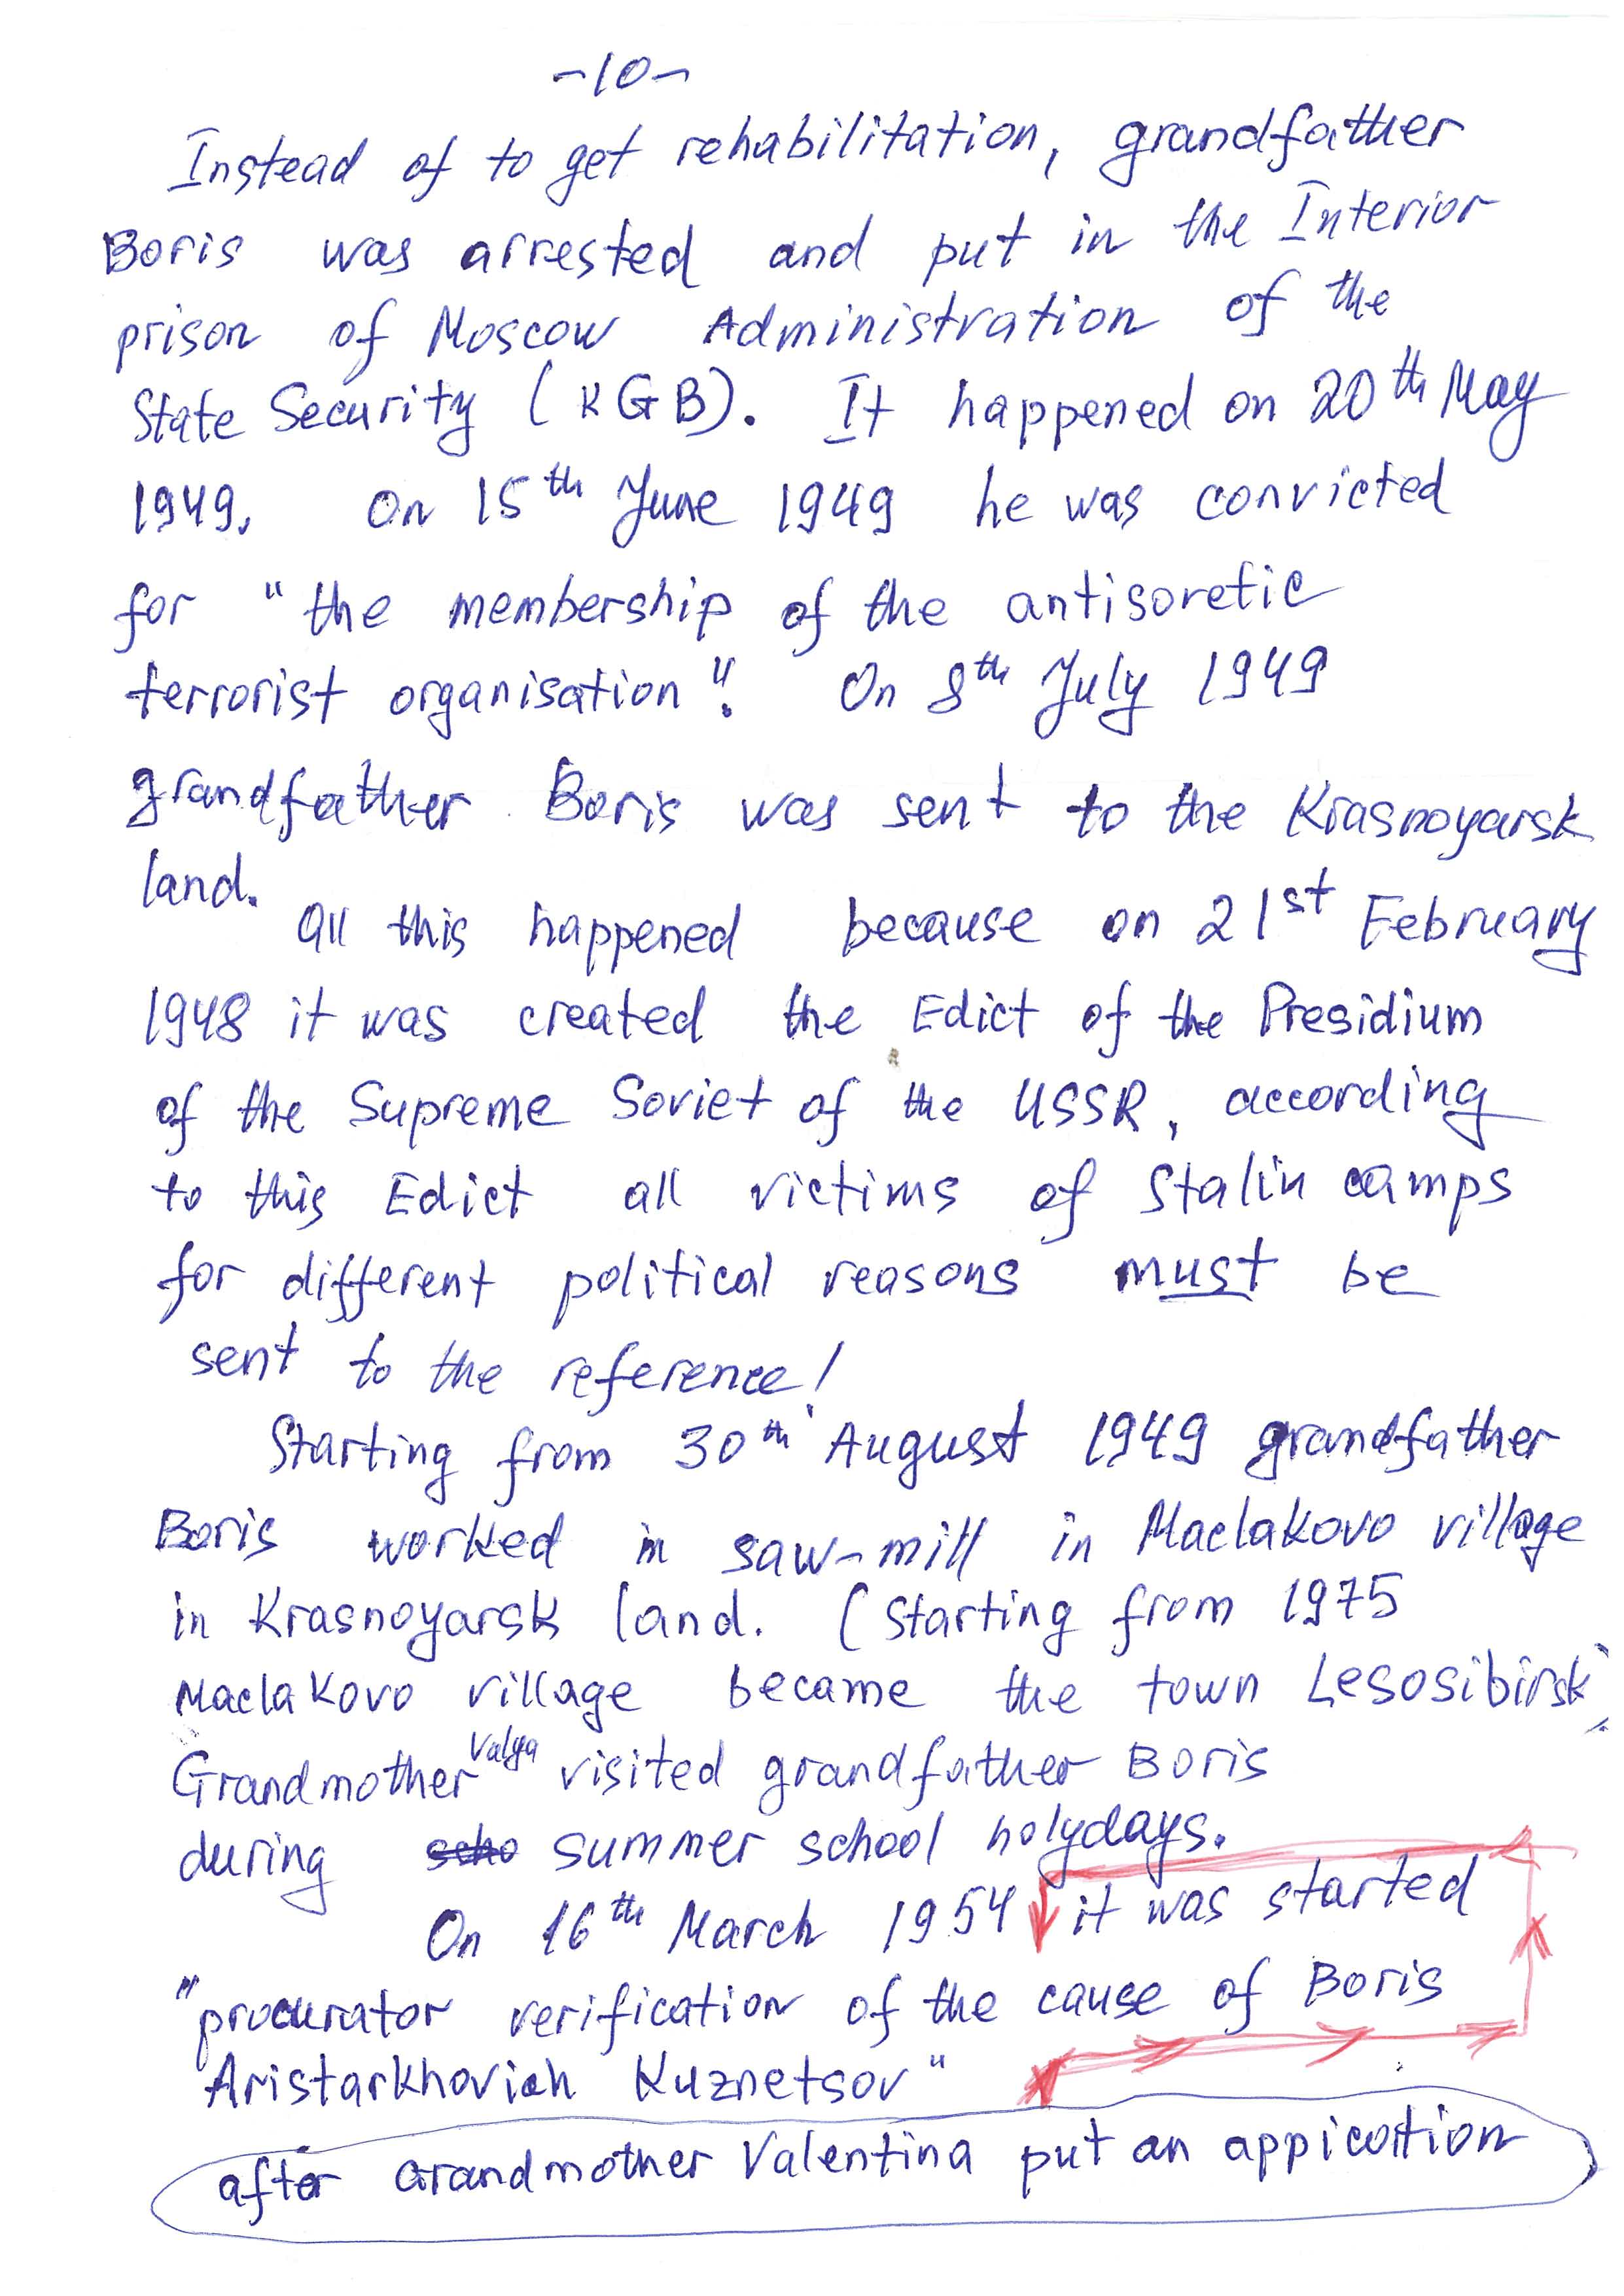 -10-
Instead of to get rehabilitation, grandfather
Boris was arrested and put in the Interior
prison of Moscow Administration of the
State Security (KGB). It happened on 20th May
1949. On 15th June 1949 he was convicted
for "the membership of the antisovetic
terrorist organisation". On 8th July 1949
grandfather Boris was sent to the Krasnoyarsk
land.
All this happened because on 21st February
1948 it was created the Edict of the Presidium
of the Supreme Soviet of the USSR, according
to this Edict all victims of Stalin camps
for different political reasons must be
sent to the reference!
Starting from 30th August 1949 grandfather
Boris worked in saw-mill in Maclakovo village
in Krasnoyarsk land. (Starting from 1975
Maclakovo village became the town Lesosibirsk)
Grandmother Valya visited grandfather Boris
during scho summer school holydays.
On 16th March 1954 it was started
"procurator verification of the cause of Boris
Aristarkhovich Kuznetsov"
after Grandmother Valentina put an appication